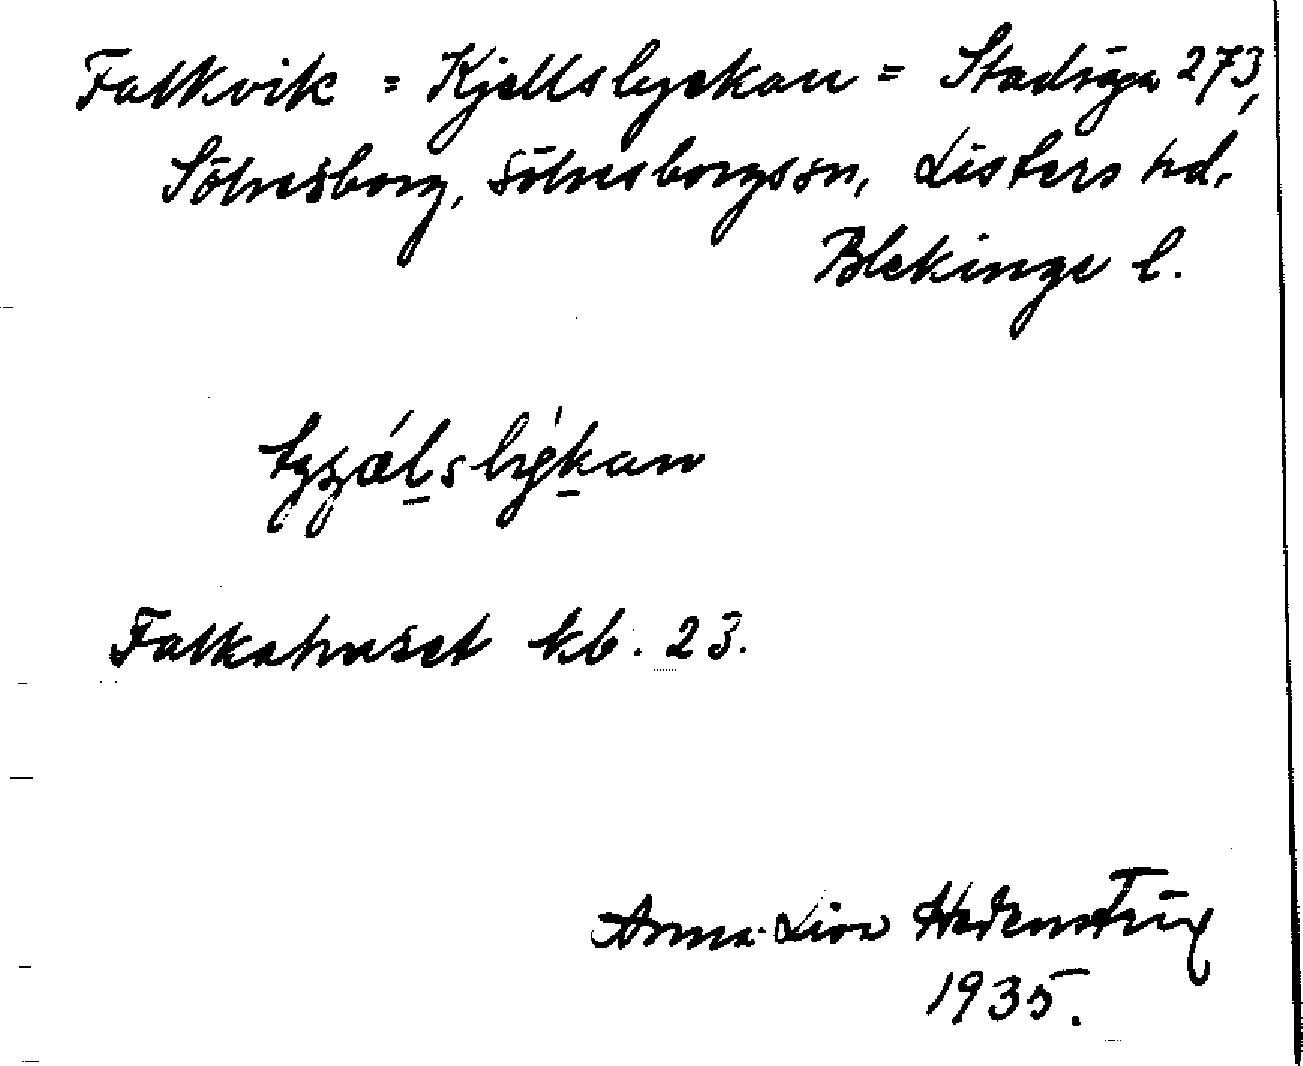 Falkvik = Kjellslyckan = Stadsäga 273,
Sölvesborg, Sölvesborgs sn, Listers hd.
Blekinge l.
Falkahuset kb. 23.
Anna-Lisa Hedenstig
1935.